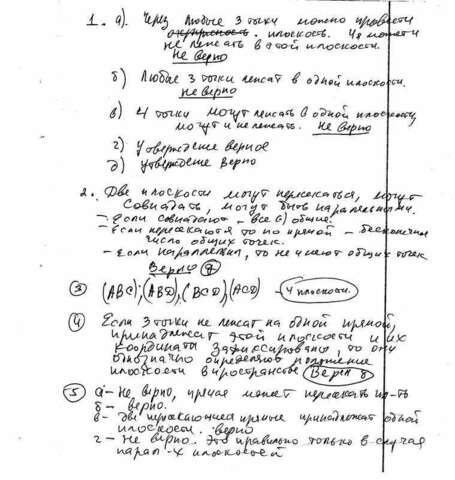 1. а) Через любые 3 точки можно провести
окружность. плоскость. Чя может и
не лежать в этой плоскости.
Не верно
б) Любые 3 точки лежат в одной плоскости.
не верно
в) 4 точки могут лежать в одной плоскости,
могут и не лежать. Не верно
г) Утверждение верное
д) утверждение верно
2. Две плоскости могут пересекаться, могут
совпадать, могут быть параллельными.
- Если совпадают - все общие.
- Если пересекаются то по прямой - бесконечное
число общих точек.
- Если параллельн, то не имеют общих точек
Верно
③ (ABC); (ABD), (BCD), (ACD) - 4 плоскости.
④ Если 3 точки не лежат на одной прямой,
принадлежат этой плоскости и их
координаты зафиксированы, то они
однозначно определяют положение
плоскости в пространстве Верн б
⑤ а - Не верно, прямая может пересекать пл-ть
б - верно.
в - две пересекающиеся прямые принадлежат одной
плоскости. верно
г - Не верно. Это правильно только в случае
парал-х плоскостей